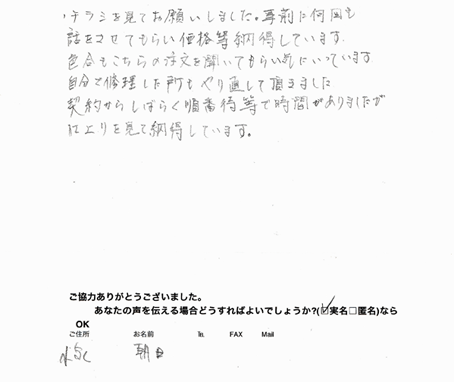 ・チラシを見てお願いしました。事前に何回も
話をさせてもらい価格等納得しています。
色合もこちらの注文を聞いてもらい気にいっています
自分で修理した所もやり直して頂きました
契約からしばらく順番待等で時間がありましたが
仕上りを見て納得しています。
ご協力ありがとうございました。
あなたの声を伝える場合どうすればよいでしょうか?(☑実名□匿名)なら
OK
ご住所 お名前 ℡ FAX Mail
朝日